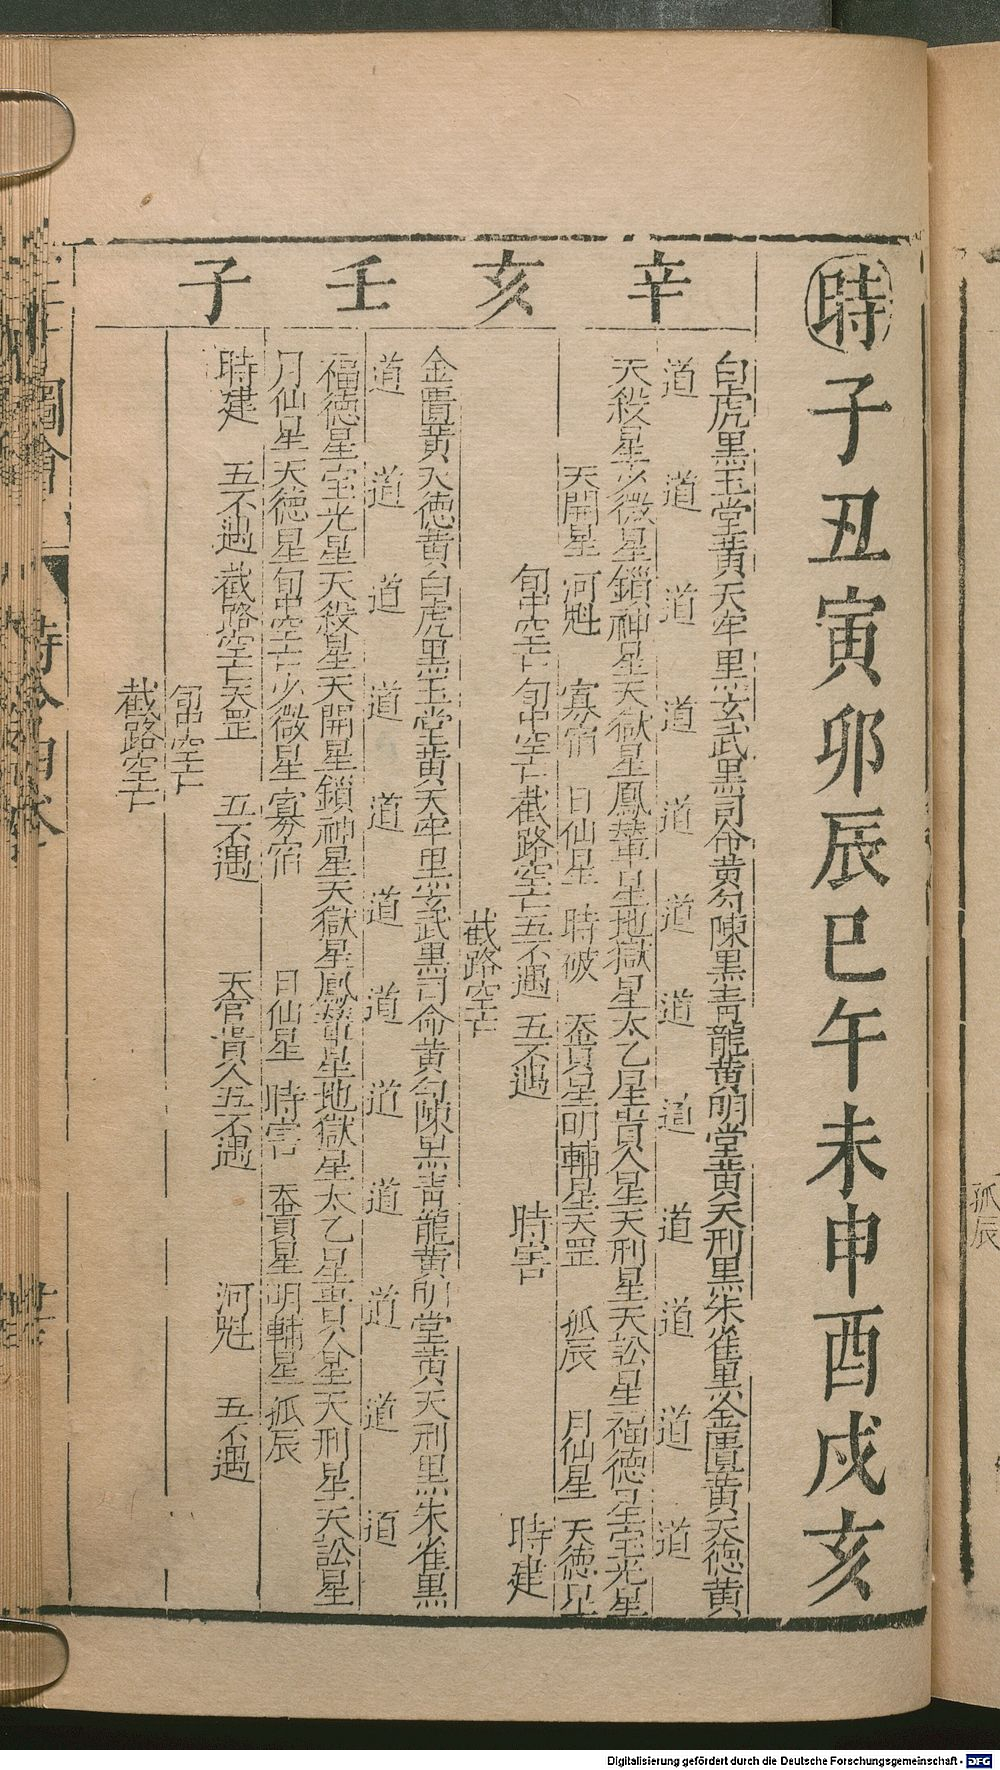 時子丑寅卯辰巳午未申酉戌亥
辛亥壬子
白虎黑玉堂黃天牢黑玄武黑司命黃勾陳黑青龍黃明堂黃天刑黑朱雀黑金匱黃天德黃
道道道道道道道道道道道道
天殺星少微星鎖神星天獄星鳳輦星地獄星太乙星貴人星天刑星天訟星福德星宝光星
天開星 河魁 寡宿 日仙星 時破 天貴星明輔星天罡 孤辰 月仙星 天德星
旬中空亡旬中空亡截路空亡五不遇 五不遇 時害 時建
截路空亡
金匱黃天德黃白虎黑玉堂黃天牢黑玄武黑司命黃勾陳黑青龍黃明堂黃天刑黑朱雀黑
道道道道道道道道道道道道
福德星宝光星天殺星天開星鎖神星天獄星鳳輦星地獄星太乙星貴人星天刑星天訟星
月仙星天德星旬中空亡少微星寡宿 日仙星 時害 天貴星明輔星孤辰
時建 五不遇 截路空亡天罡 五不遇 天官貴人五不遇 河魁 五不遇
旬中空亡
截路空亡
孤辰
Digitalisierung gefördert durch die Deutsche Forschungsgemeinschaft - DFG